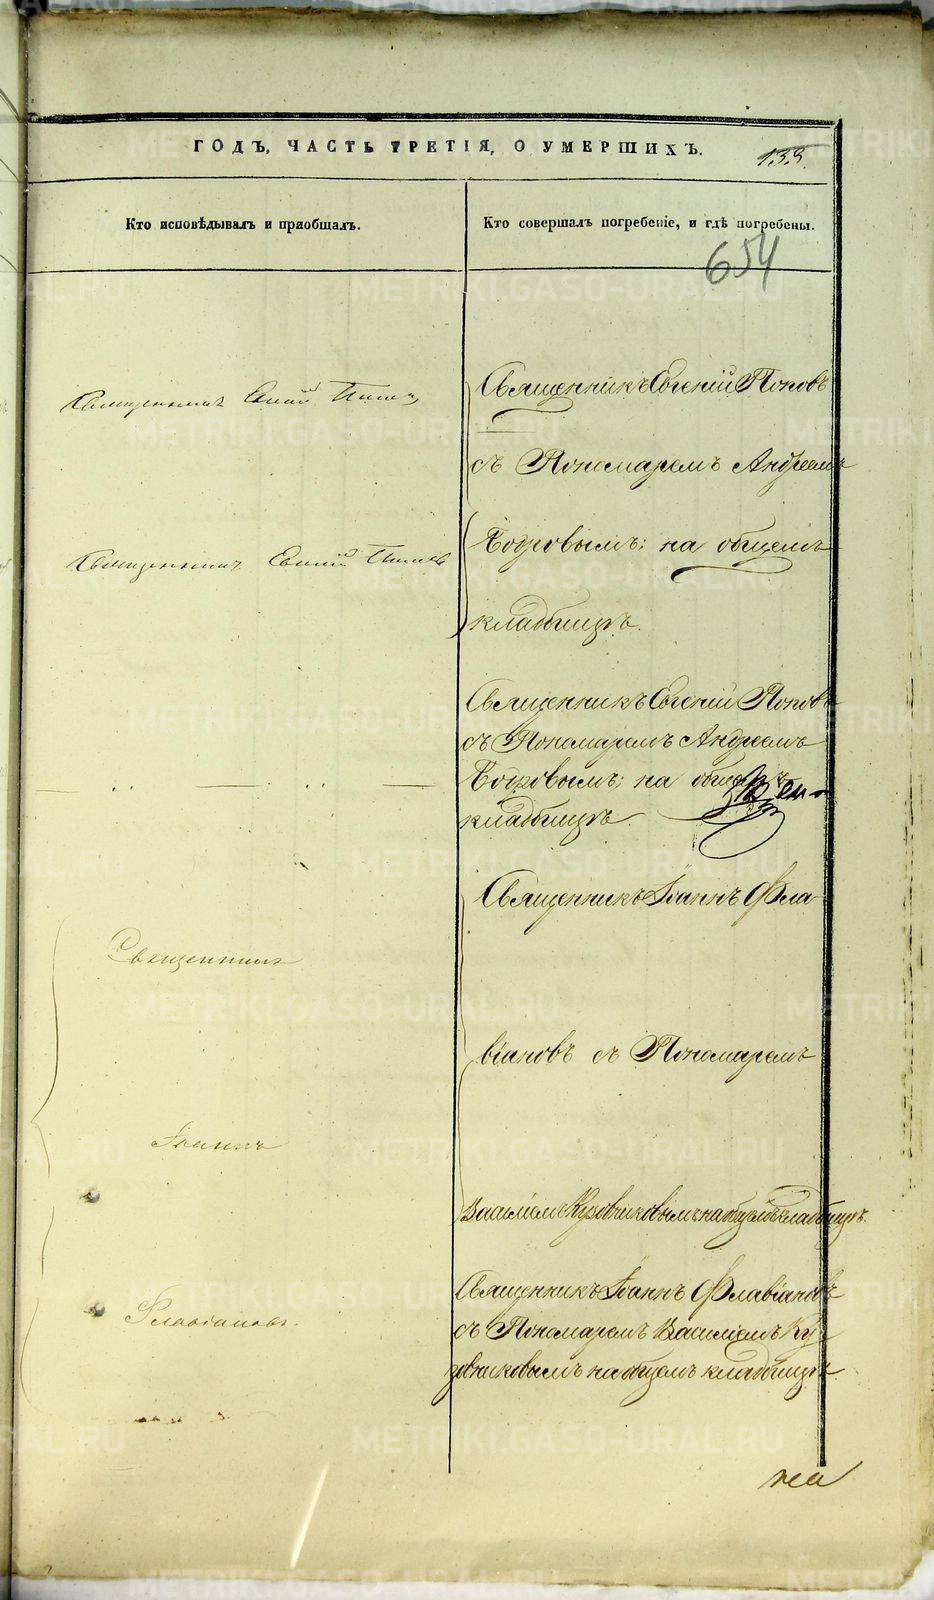 ГОДЪ, ЧАСТЬ ТРЕТІЯ, О УМЕРШИХЪ.
139.
Кто исповѣдывалъ и пріобщалъ.
Кто совершалъ погребеніе, и гдѣ погребены.
654
Священникъ Евгеній Поповъ
Священникъ Евгеній Поповъ
съ Пономаремъ Андреемъ
на общемъ
Священникъ Евгеній Поповъ
кладбищѣ.
Священникъ Евгеній Поповъ
съ Пономаремъ Андреемъ
на общемъ
кладбищѣ.
Священникъ Іоаннъ Фла-
Священникъ
віановъ съ Пономаремъ
Іоаннъ
Василіемъ Кузовниковымъ на общемъ кладбищѣ.
Священникъ Іоаннъ Флавіановъ
Флавіановъ.
съ Пономаремъ Василіемъ Ку
зовниковымъ на общемъ кладбищѣ.
на
METRIKI.GASO-URAL.RU